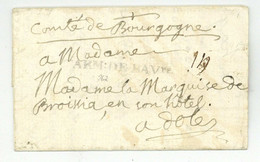 Comté de Bourgogne.
a Madame
ARM: DE BAVIE
Madame la Marquise de
Broissia, en son hôtel.
a dole